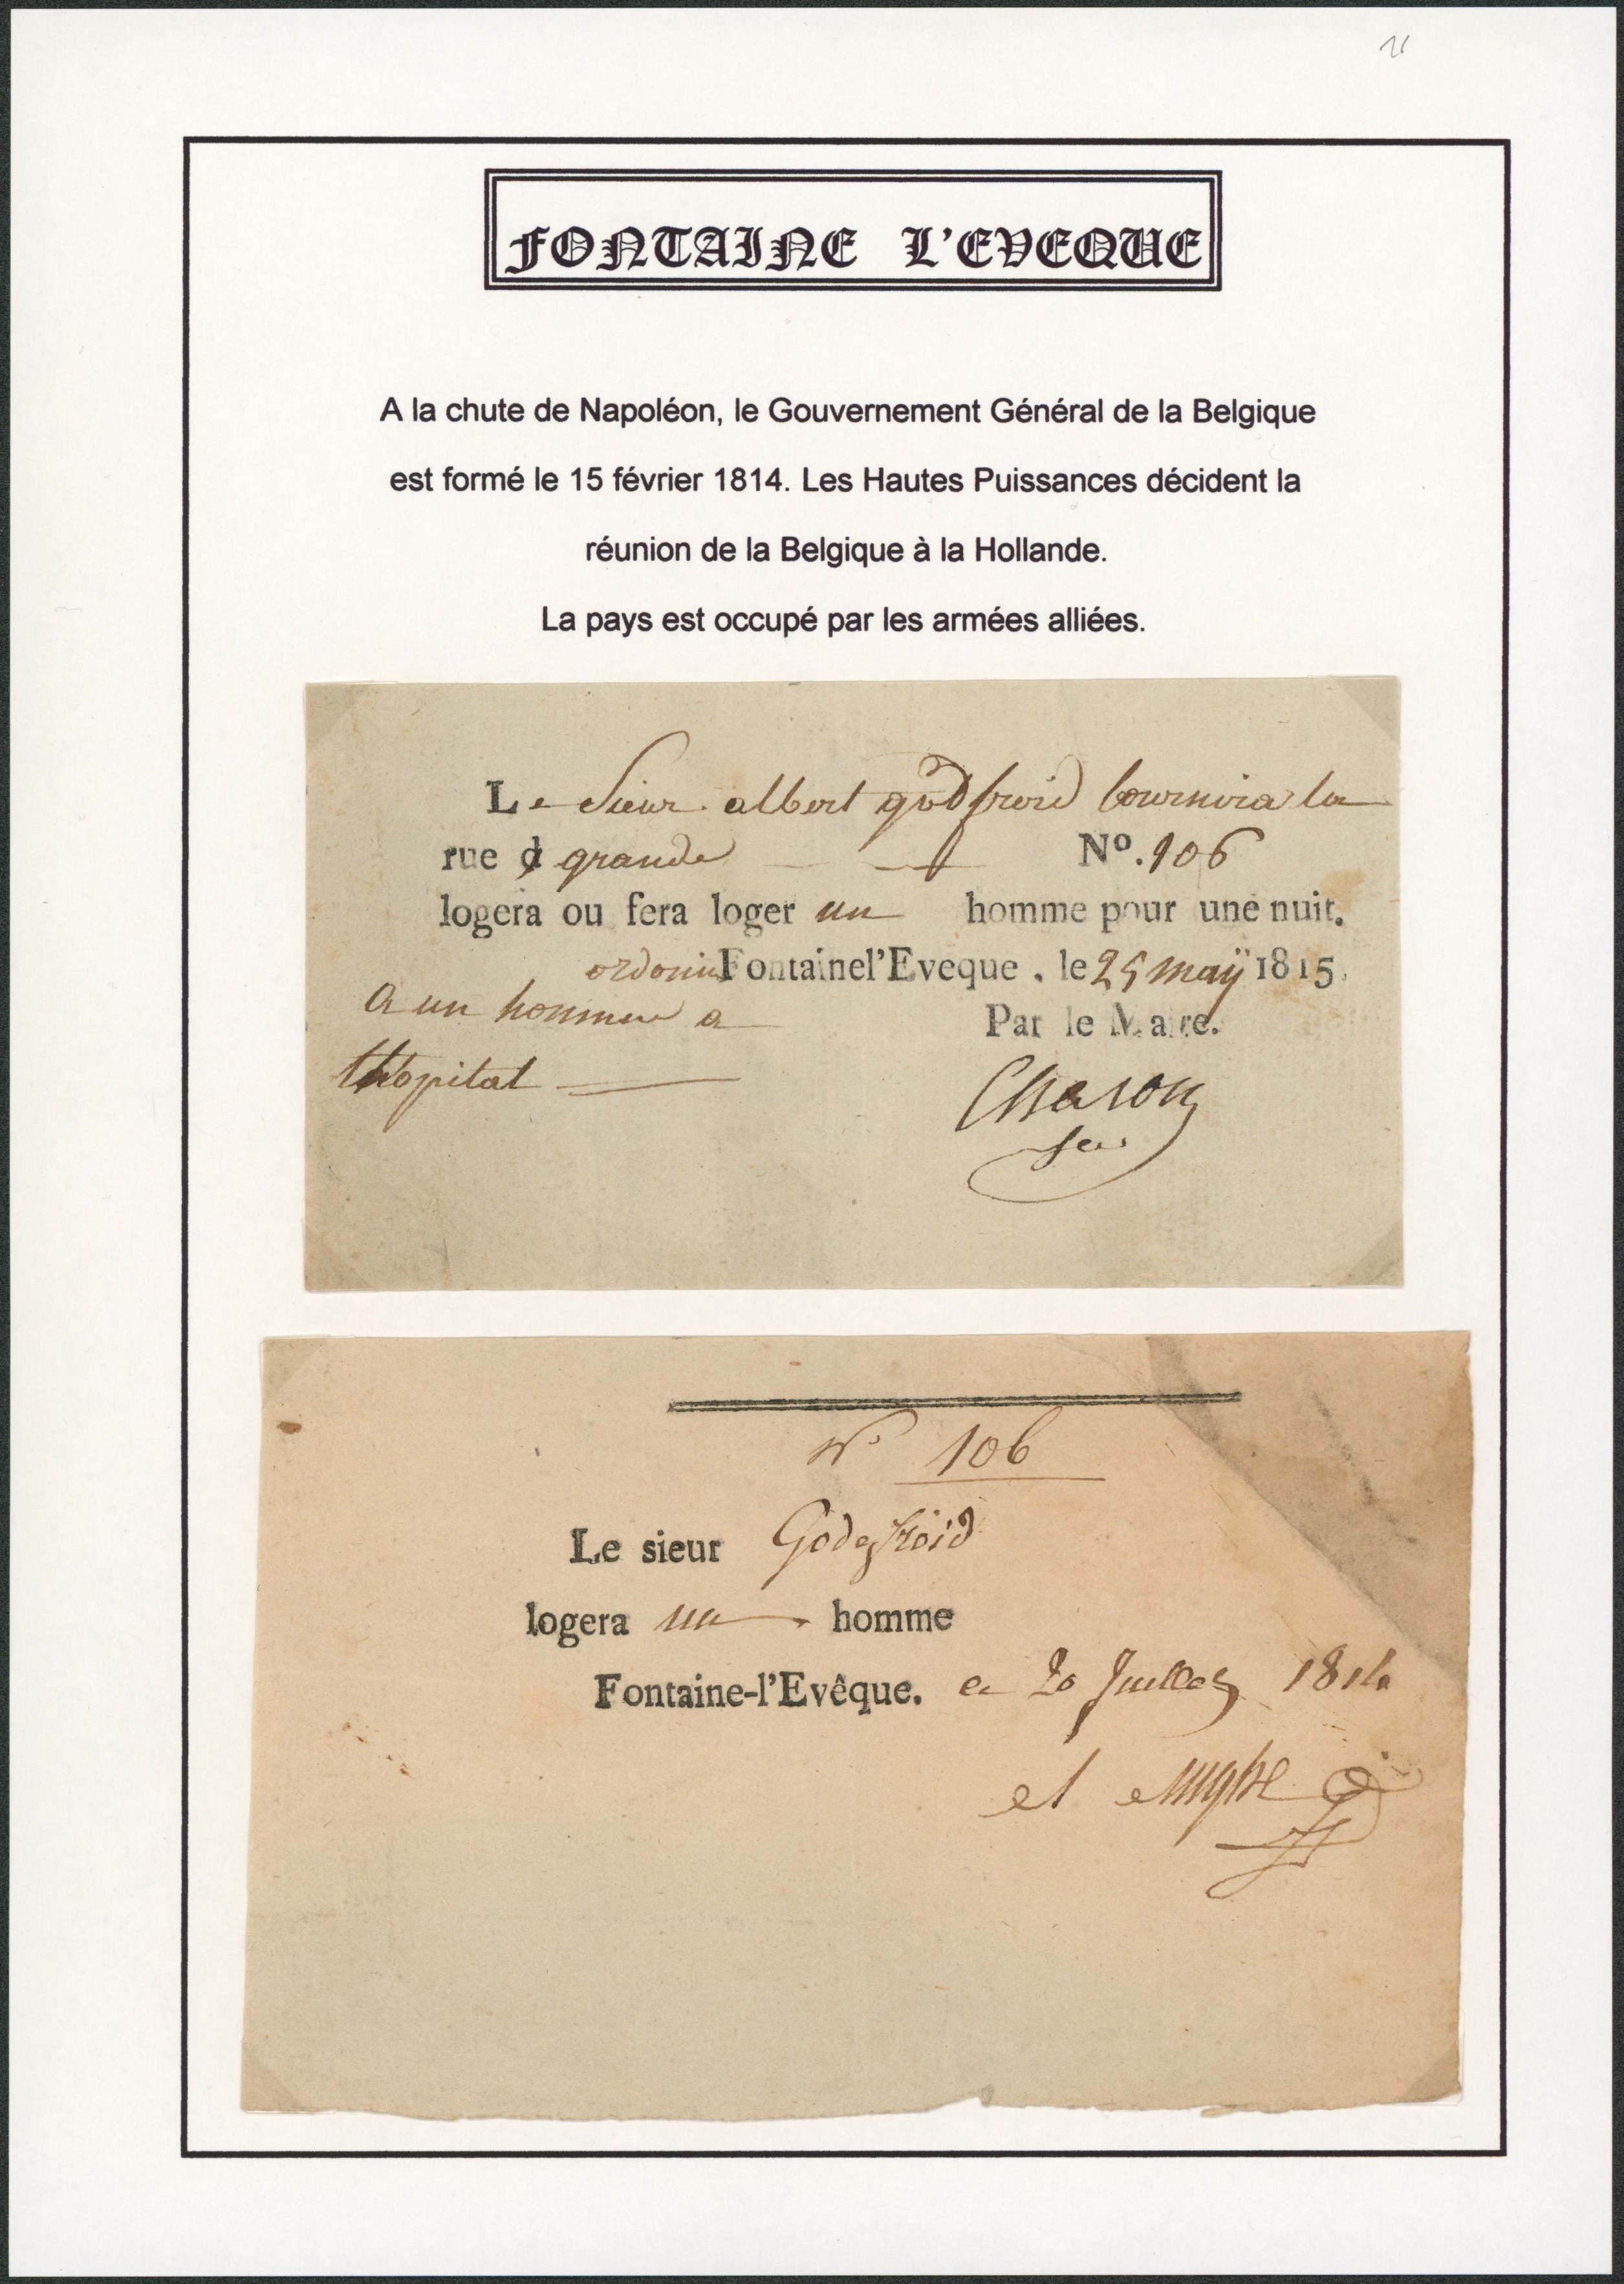 FONTAINE L'EVEQUE
A la chute de Napoléon, le Gouvernement Général de la Belgique
est formé le 15 février 1814. Les Hautes Puissances décident la
réunion de la Belgique à la Hollande.
La pays est occupé par les armées alliées.
Le Sieur albert godfroid la
rue d grande No. 106
logera ou fera loger un homme pour une nuit.
Fontainel'Eveque, le 25 maÿ 1815.
a un homme a
Par le Maire.
lhopital
Charon
N° 106
Le sieur Godefroid
logera un homme
Fontaine-l'Evêque. ce 20 Juillet 1814
et